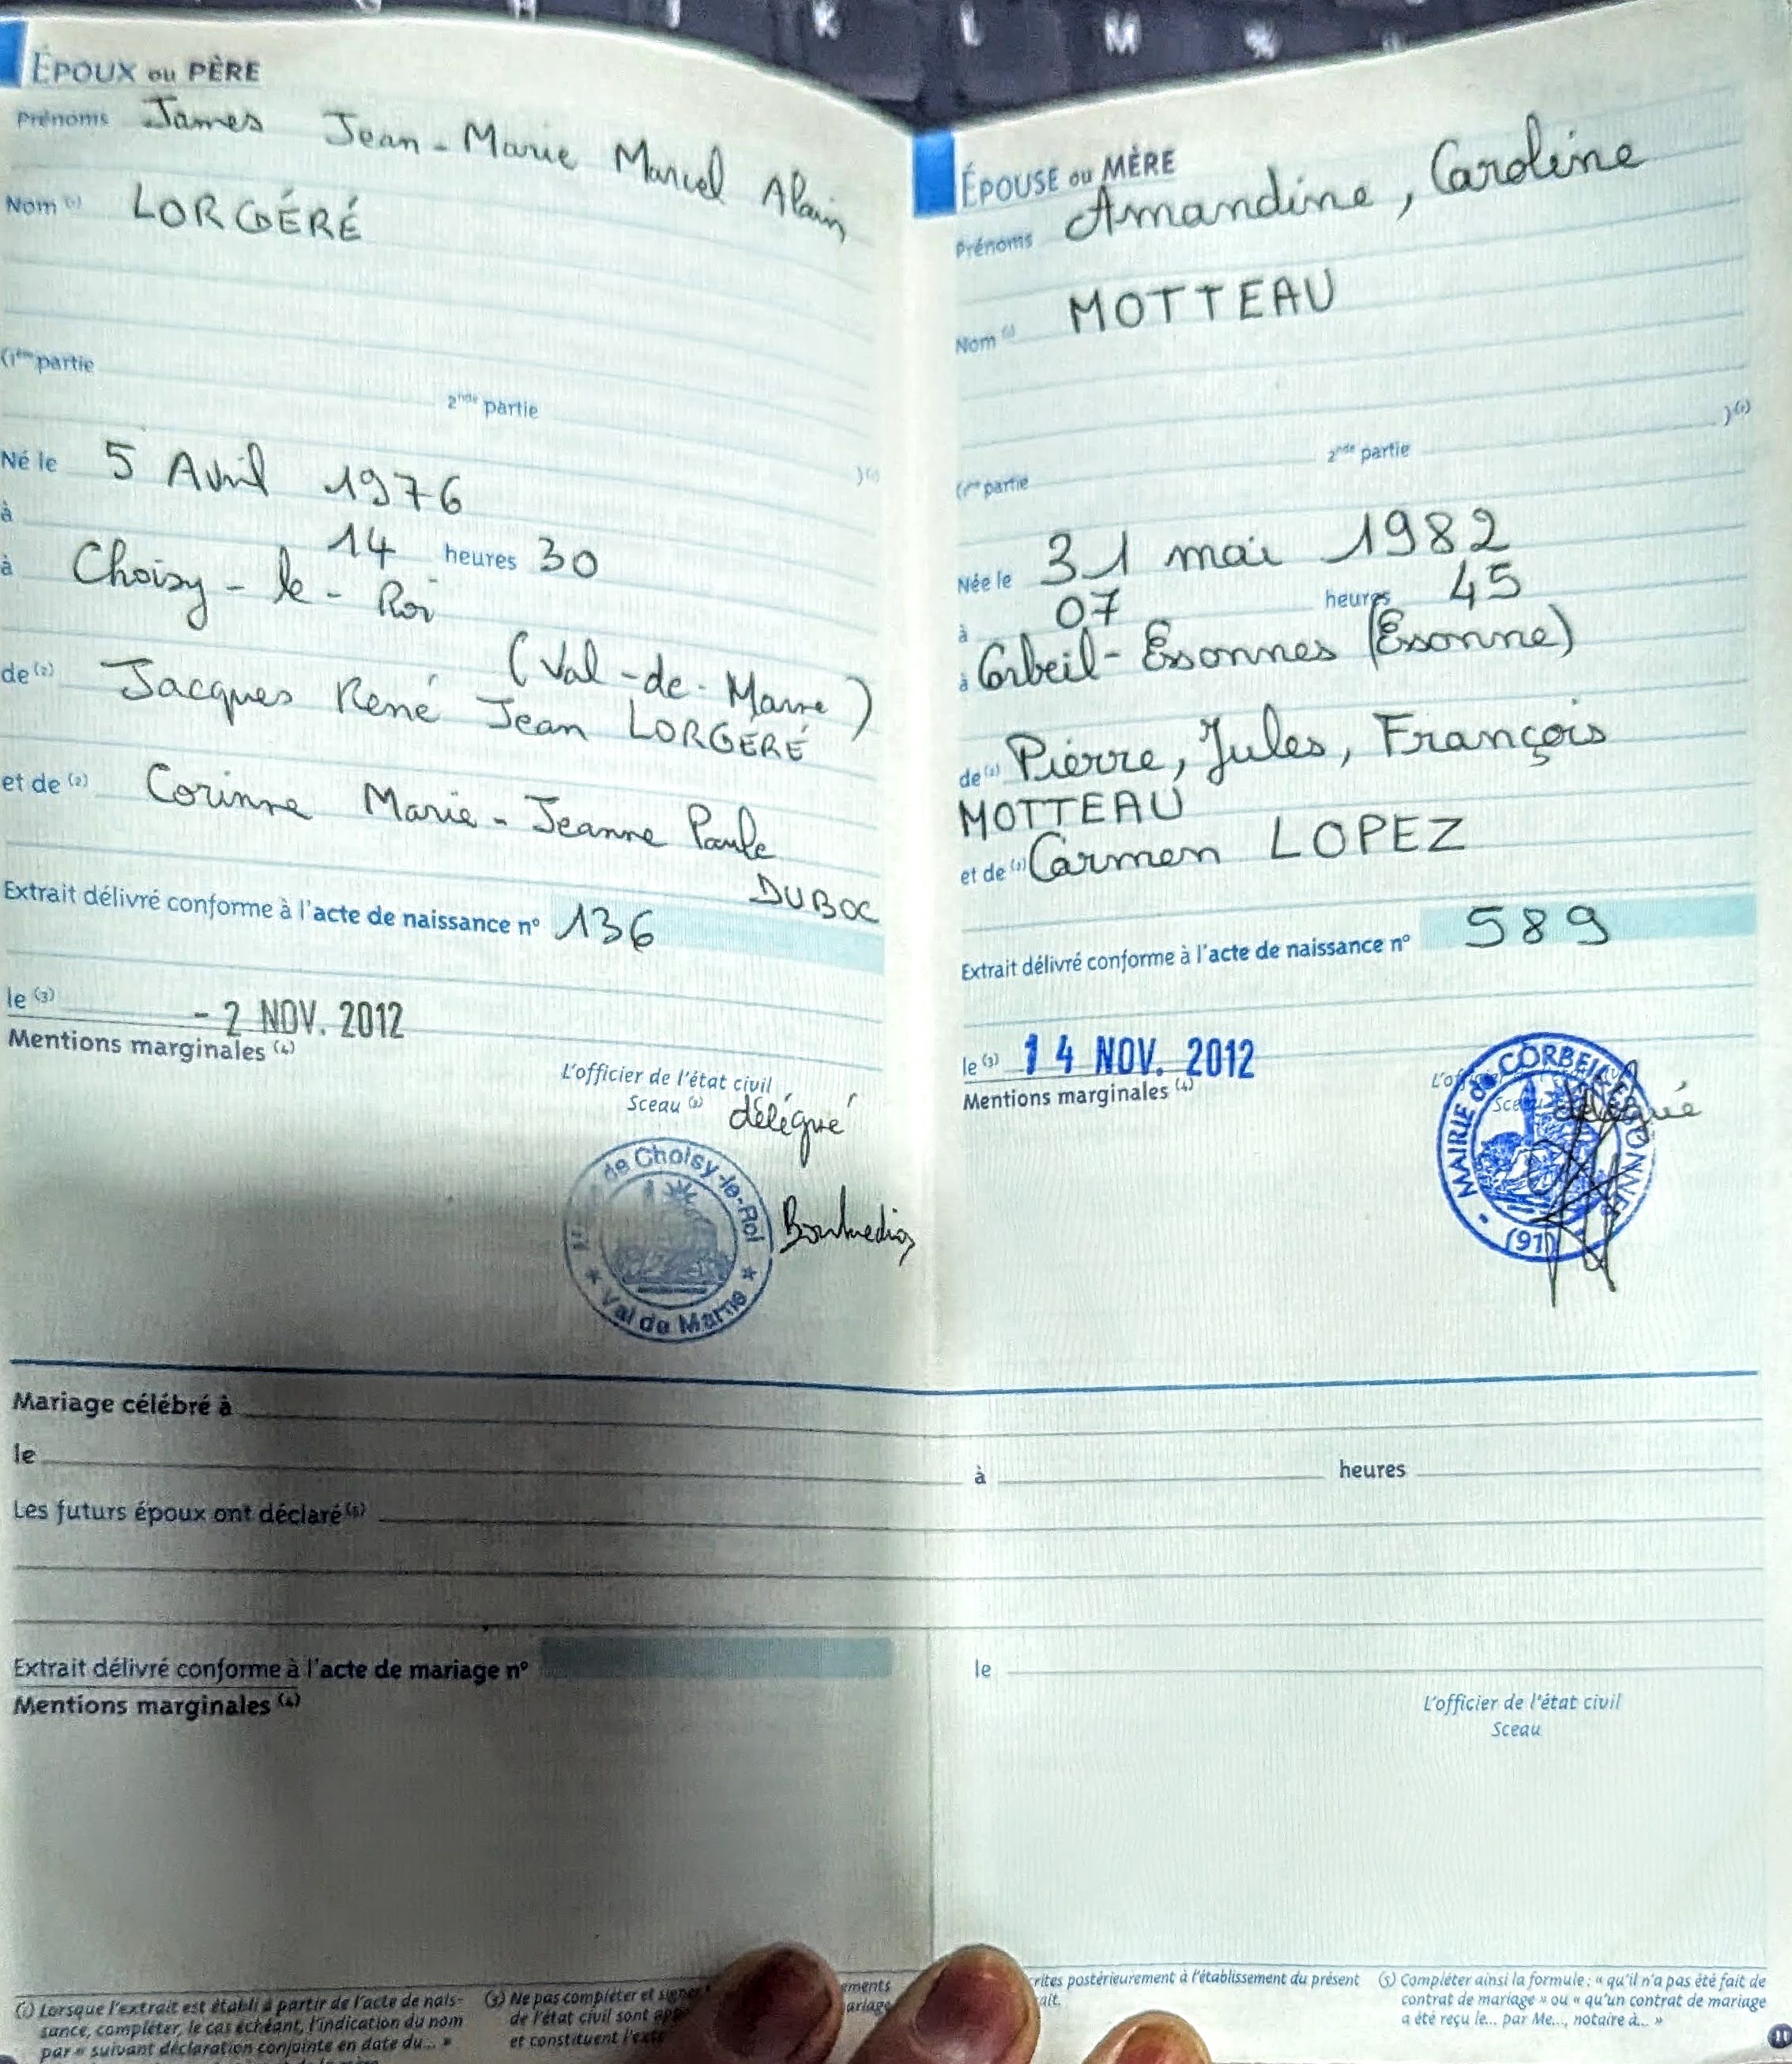 K L M %
ÉPOUX ou PÈRE
Prénoms James Jean-Marie Marcel Alain
Nom (1) LORGÉRÉ
(1ère partie
2nde partie
)(1)
Né le 5 Avril 1976
à 14 heures 30
à Choisy-le-Roi
(Val-de-Marne)
de (2) Jacques René Jean LORGÉRÉ
et de (2) Corinne Marie-Jeanne Paule
DUBOC
Extrait délivré conforme à l'acte de naissance n° 136
le (3) - 2 NOV. 2012
Mentions marginales (4)
L'officier de l'état civil
Sceau (3) délégué
de Choisy-le-Roi
Val de Marne
ÉPOUSE ou MÈRE
Prénoms Amandine, Caroline
Nom (1) MOTTEAU
(1ère partie
2nde partie
)(1)
Née le 31 mai 1982
à 07 heures 45
à Corbeil-Essonnes (Essonne)
de (2) Pierre, Jules, François
MOTTEAU
et de (2) Carmen LOPEZ
Extrait délivré conforme à l'acte de naissance n° 589
le (3) 14 NOV. 2012
Mentions marginales (4)
Sceau déléguée
MAIRIE de CORBEIL ESSONNES
(91)
Mariage célébré à
le
à heures
Les futurs époux ont déclaré (5)
Extrait délivré conforme à l'acte de mariage n°
le
Mentions marginales (4)
L'officier de l'état civil
Sceau
(1) Lorsque l'extrait est établi à partir de l'acte de nais-
sance, compléter, le cas échéant, l'indication du nom
par « suivant déclaration conjointe en date du... »
(3) Ne pas compléter et signer
de l'état civil sont
et constituent
rites postérieurement à l'établissement du présent
(5) Compléter ainsi la formule : « qu'il n'a pas été fait de
contrat de mariage » ou « qu'un contrat de mariage
a été reçu le... par Me..., notaire à... »